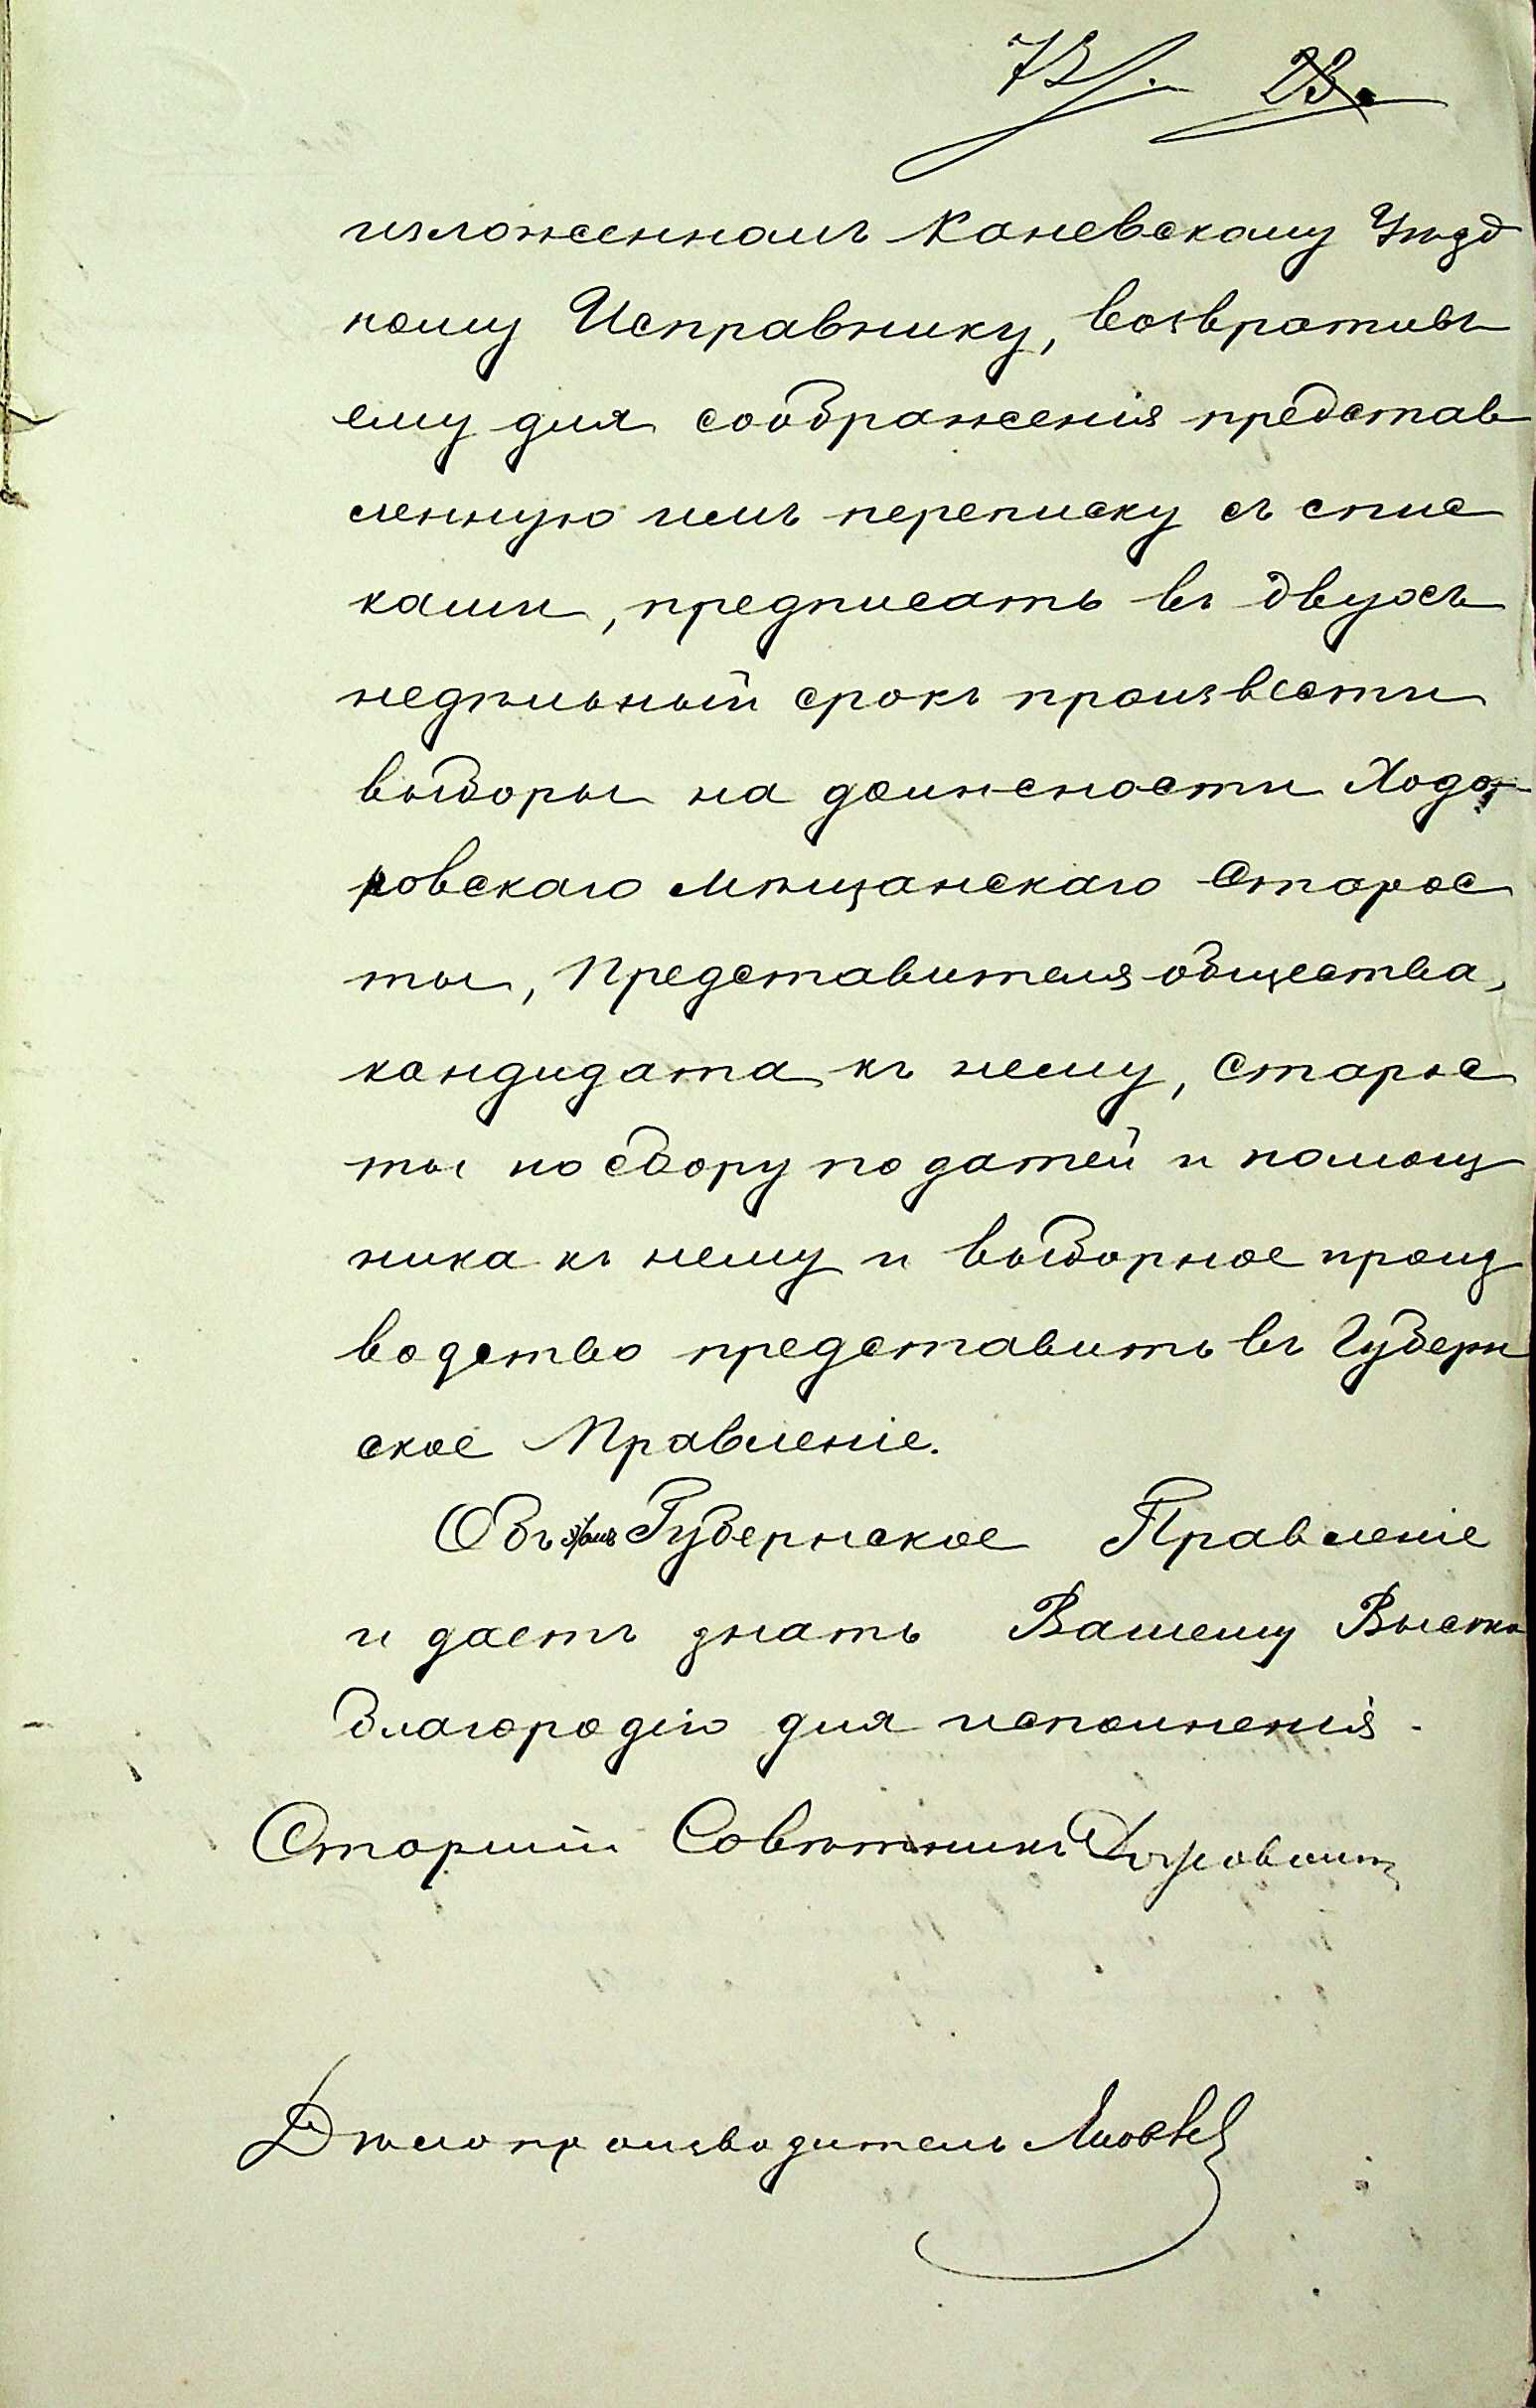 73 23
изложенномъ Каневскому Уѣзд
ному Исправнику, возвративъ
ему для соображенія представ
ленную имъ переписку съ спис
ками, предписать въ двухъ
недѣльный срокъ произвести
выборы на должности Ходо
ровскаго Мѣщанскаго Старос
ты, Представителя общества,
кандидата къ нему, Старос
ты по сбору податей и помощ
ника къ нему и выборное произ
водство представить въ Губерн
ское Правленіе.
Объ этомъ Губернское Правленіе
и даетъ знать Вашему Высоко
благородію для исполненія.
Старшій Совѣтникъ
Дѣлопроизводитель